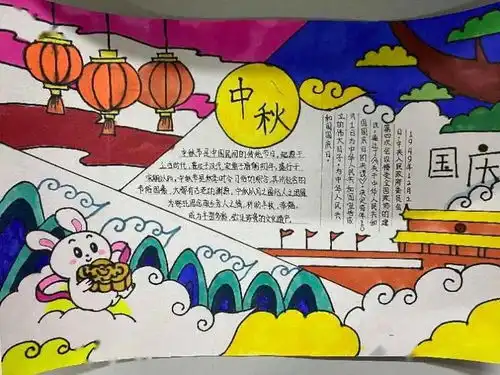 中秋
中秋节是中国民间的传统节日，起源于
上古时代，普及于汉代，定型于唐朝初年，盛行于
宋朝以后。中秋节是秋季时令习俗的综合，其所包含的
节俗因素，大都有古老的渊源。中秋以月之圆兆人之团圆
为寄托思念故乡，思念亲人之情，祈盼丰收、幸福，
成为丰富多彩、弥足珍贵的文化遗产。
国庆
1949年12月2
日，中央人民政府委员会
第四次会议接受全国政协的建
议，通过了《关于中华人民共和
国国庆日的决议》，决定每年10
月1日为中华人民共和国宣告成
立的伟大日子，为中华人民共
和国国庆日。